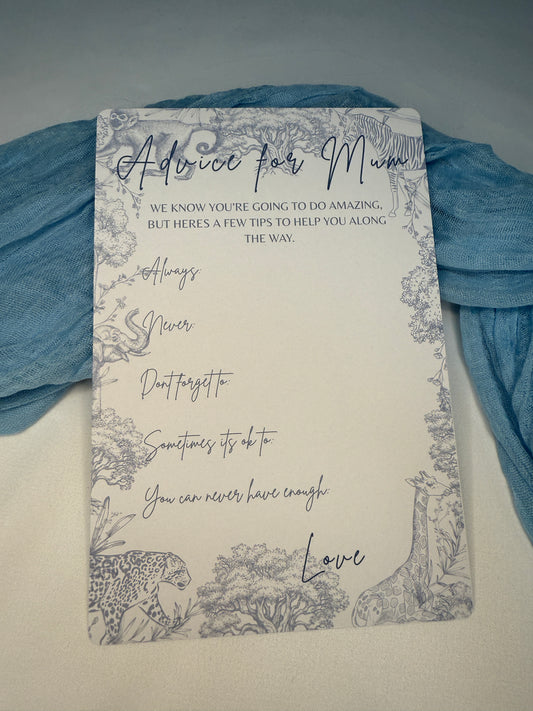 Advice for Mum
WE KNOW YOU'RE GOING TO DO AMAZING,
BUT HERES A FEW TIPS TO HELP YOU ALONG
THE WAY.
Always:
Never:
Dont forget to:
Sometimes its ok to:
You can never have enough:
Love